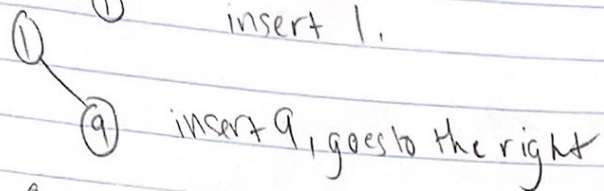 1 insert 1.
1
9 insert 9, goes to the right